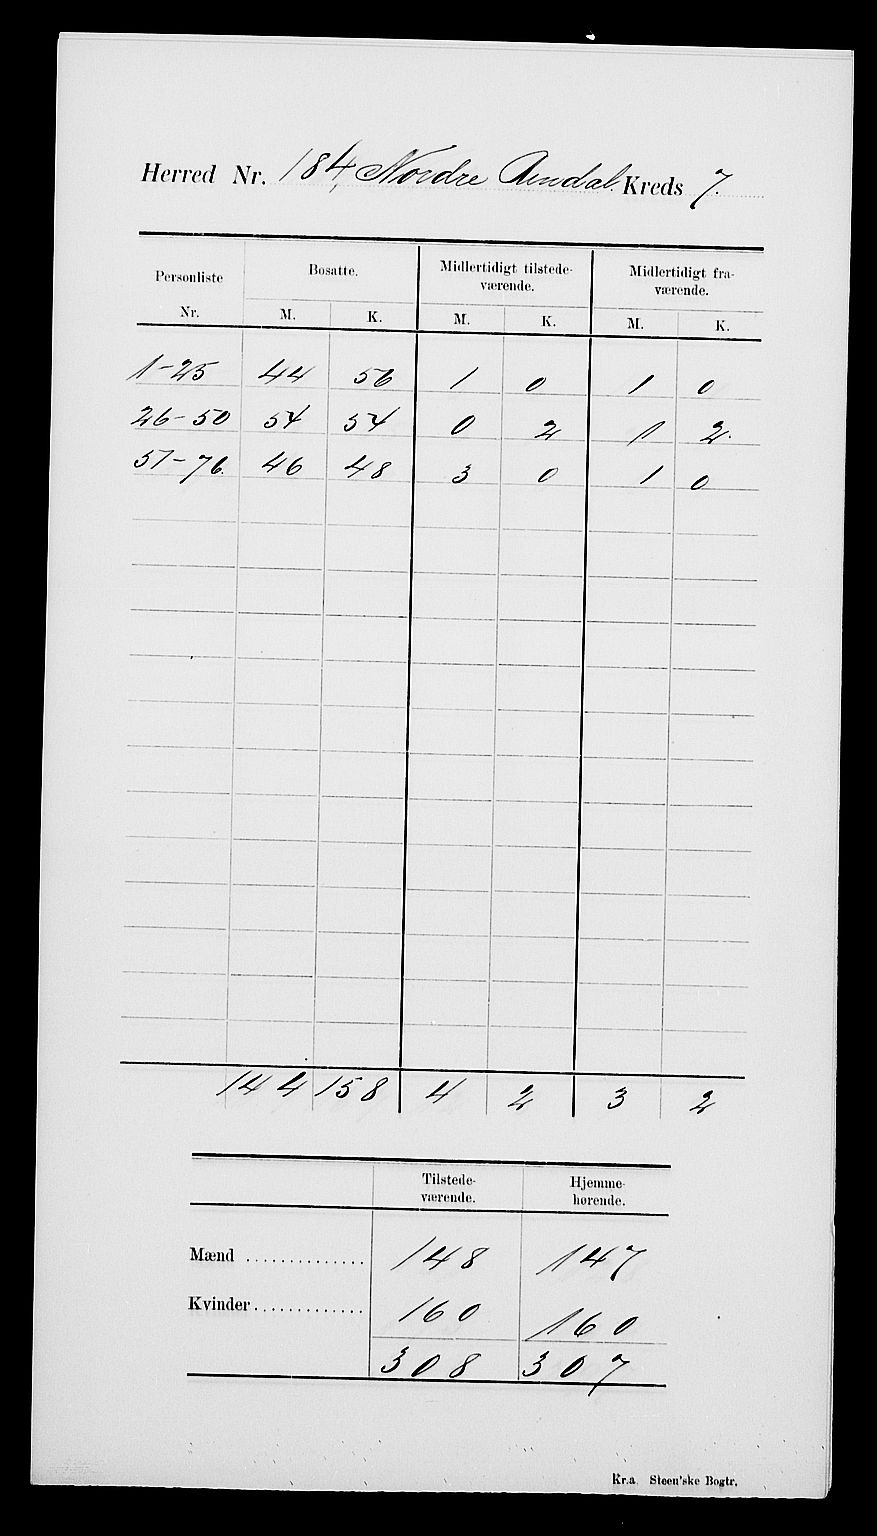 Herred Nr. 184, Nordre Aurdal. Kreds 7.
Personliste Nr. Bosatte. Midlertidigt tilstedeværende. Midlertidigt fraværende.
M. K. M. K. M. K.
1-25 44 56 1 0 1 0
26-50 54 54 0 2 1 2.
51-76 46 48 3 0 1 0
144 158 4 2 3 2
Tilstede-værende. Hjemme-hørende.
Mænd .............. 148 147
Kvinder............. 160 160
308 307
Kr.a Steen'ske Bogtr.